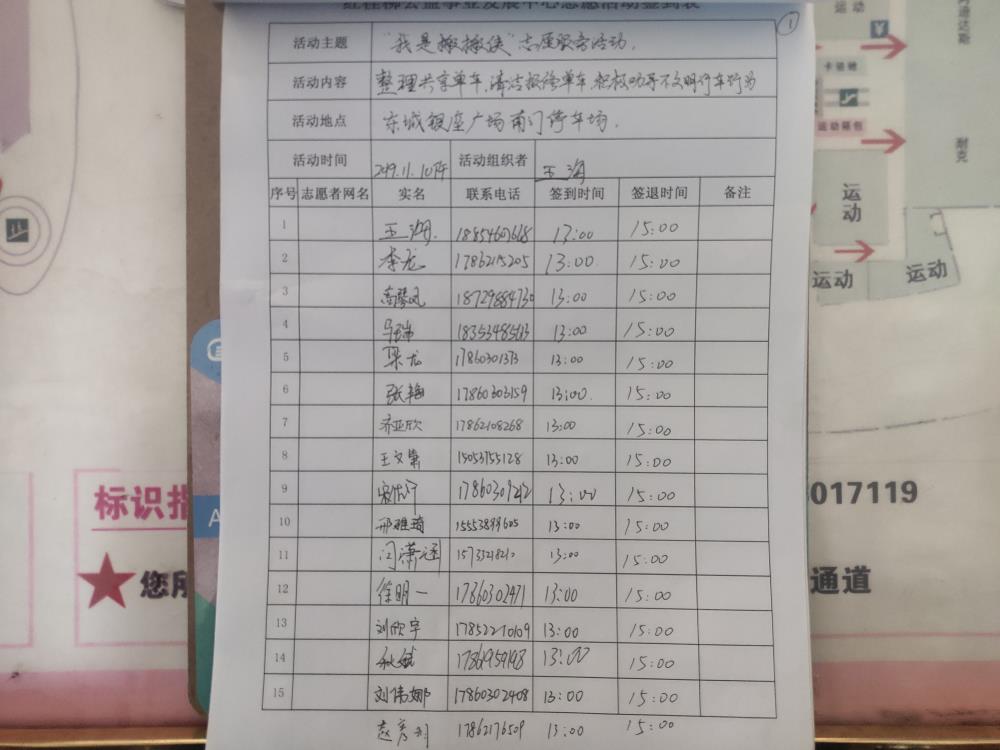 红柽柳公益事业发展中心志愿活动签到表
①
活动主题 "我是搬搬侠"志愿服务活动.
活动内容 整理共享单车,清洁报修单车,积极劝导不文明停车行为
活动地点 东城银座广场南门停车场.
活动时间 2019.11.10 活动组织者 王海
序号 志愿者网名 实名 联系电话 签到时间 签退时间 备注
1 13:00 15:00
2 李龙 17862115205 13:00 15:00
3 18729884730 13:00 15:00
4 13:00 15:00
5 梁龙 17860301373 13:00 15:00
6 张梅 17860303159 13:00 15:00
7 济亚欣 17862108268 13:00 15:00
8 王文第 15053755128 13:00 15:00
9 13:00 15:00
10 邢雅琦 13:00 15:00
11 闫潇涵 13:00 15:00
12 徐明一 17860302471 13:00 15:00
13 刘欣宇 17852210109 13:00 15:00
14 13:00 15:00
15 刘伟娜 17860302408 13:00 15:00
赵彦利 17862176509 13:00 15:00
标识指
★您所
A
017119
通道
运动
阿迪达斯
卡骆驰
运动箱包
耐克
运动
运动
运动